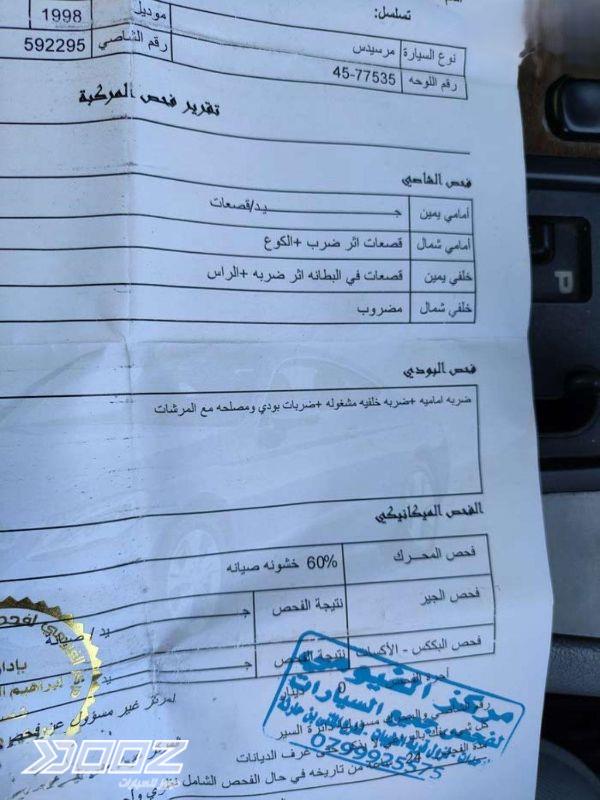 تسلسل:
موديل 1998
نوع السيارة مرسيدس رقم الشاصي 592295
رقم اللوحه 45-77535
تقرير فحص المركبة
فحص الشاصي
أمامي يمين جـــيد/قصعات
أمامي شمال قصعات اثر ضرب +الكوع
خلفي يمين قصعات في البطانه اثر ضربه +الراس
خلفي شمال مضروب
فحص البودي
ضربه اماميه +ضربه خلفيه مشغوله +ضربات بودي ومصلحه مع المرشات
الفحص الميكانيكي
فحص المحـــرك 60% خشونه صيانه
فحص الجير نتيجة الفحص جـــيد/
فحص البككس - الأكسات نتيجة الفحص جـــيد
أجرة
0 دينار
المركز غير مسؤول عن فحص
مركز
لفحص السيارات
0799955575
دائرة السير
24
من تاريخه في حال الفحص الشامل
بإدارة
ابراهيم
DOOZ
دووز للسيارات